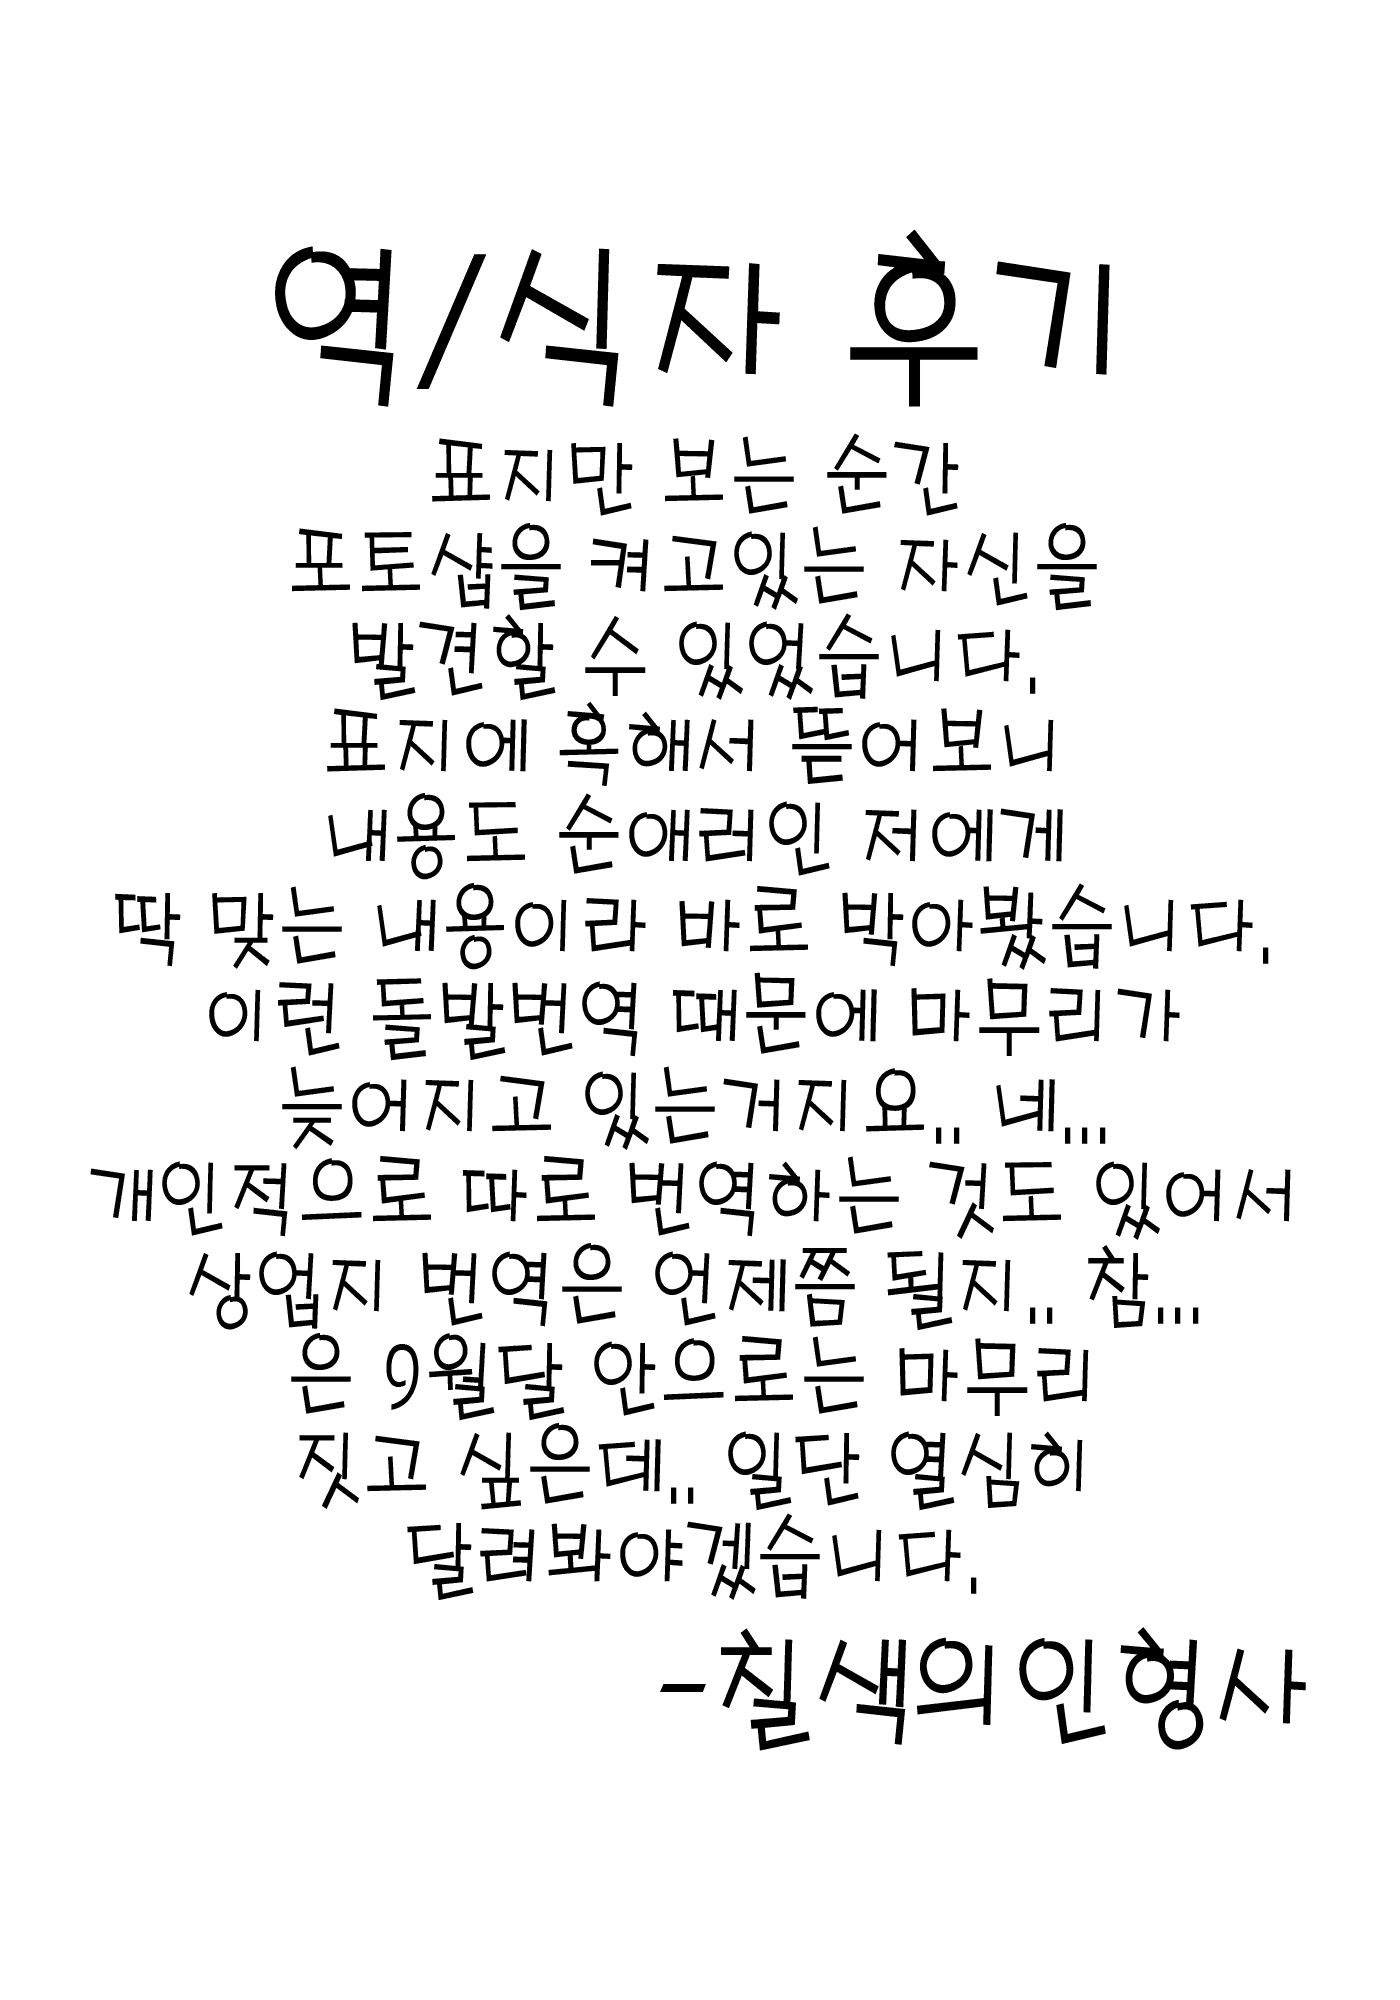 역/식자 후기
표지만 보는 순간
포토샵을 켜고있는 자신을
발견할 수 있었습니다.
표지에 혹해서 뜯어보니
내용도 순애러인 저에게
딱 맞는 내용이라 바로 박아봤습니다.
이런 돌발번역 때문에 마무리가
늦어지고 있는거지요.. 네...
개인적으로 따로 번역하는 것도 있어서
상업지 번역은 언제쯤 될지.. 참...
은 9월달 안으로는 마무리
짓고 싶은데.. 일단 열심히
달려봐야겠습니다.
-칠색의인형사